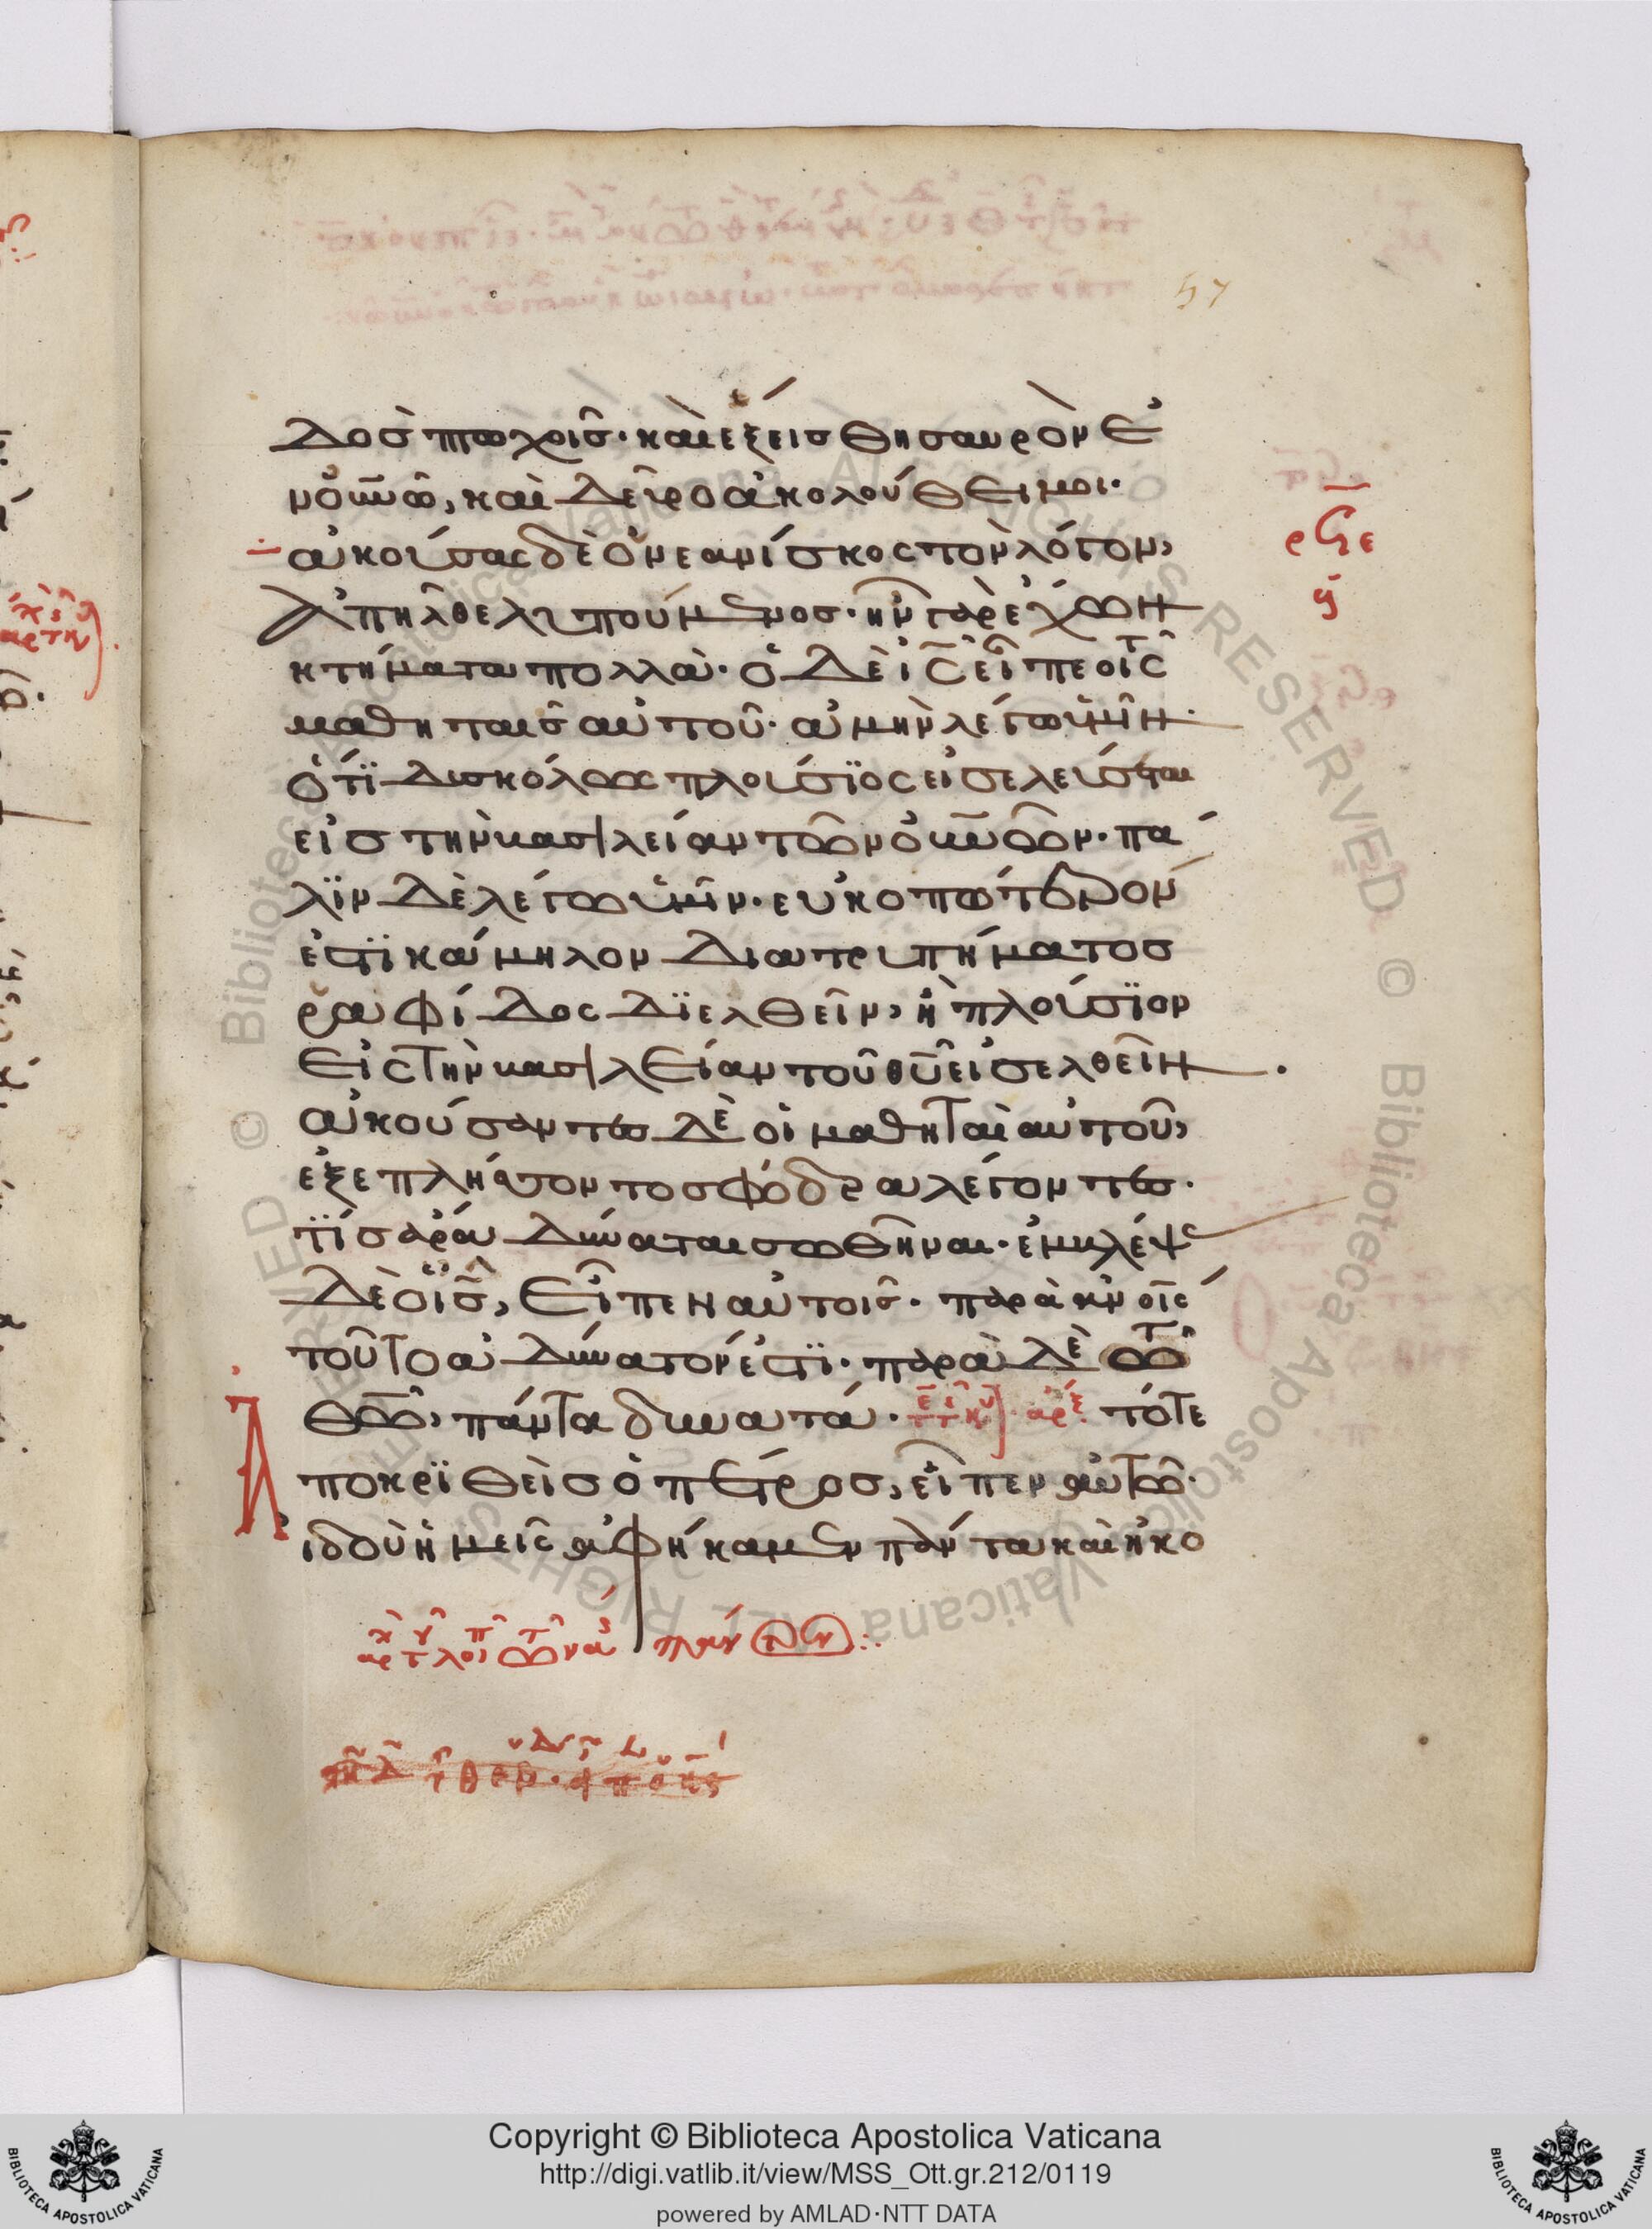 57
δὸς πτωχοῖς· καὶ ἕξεις θησαυρὸν ἐν
οὐνῶ, καὶ δεῦρο ἀκολούθει μοι·
ἀκούσας δὲ ὁ νεανίσκος τὸν λόγον,
ἀπῆλθε λυπούμενος· ἦν γὰρ ἔχων
κτήματα πολλά· ὁ δὲ ις εἶπε τοῖς
μαθηταῖς αὐτοῦ· ἀμὴν λέγω ὑμῖν·
ὅτι δυσκόλως πλούσιος εἰσελεύσεται
εἰς τὴν βασιλείαν τῶν οὐνῶν· πά
λιν δὲ λέγω ὑμῖν· εὐκοπώτερον
ἐστι κάμηλον διὰ τρυπήματος
ραφίδος διελθεῖν, ἢ πλούσιον
εἰς τὴν βασιλείαν τοῦ θυ εἰσελθεῖν·
ἀκούσαντες δὲ οἱ μαθηταὶ αὐτοῦ,
ἐξεπλήττοντο σφόδρα λέγοντες·
τίς ἄρα δύναται σωθῆναι· ἐμβλέψας
δὲ ὁ ις, εἶπεν αὐτοῖς· παρὰ ανοις
τοῦτο ἀδύνατόν ἐστι· παρὰ δὲ τῶ
θω, πάντα δυνατά· τότε
ἀποκριθεὶς ὁ πέτρος, εἶπεν αὐτῶ·
ἰδοὺ ἡμεῖς ἀφήκαμεν πάντα καὶ ἠκο
Copyright © Biblioteca Apostolica Vaticana
http://digi.vatlib.it/view/MSS_Ott.gr.212/0119
powered by AMLAD·NTT DATA
BIBLIOTECA APOSTOLICA VATICANA
BIBLIOTECA APOSTOLICA VATICANA